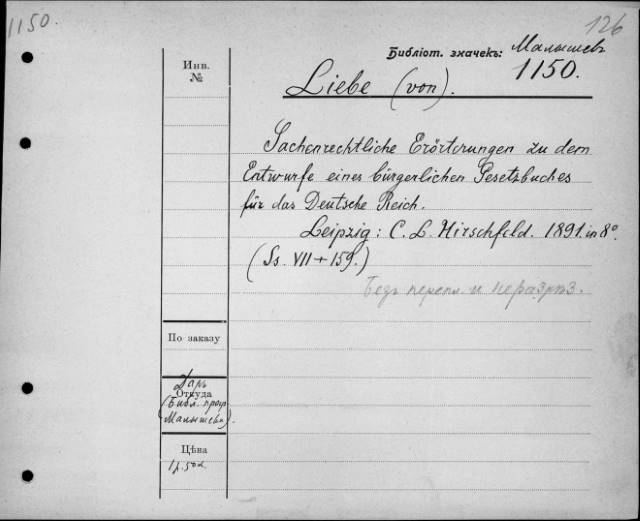 1150.
126
Библіот. значекъ: Малышевъ
1150.
Инв.
№
Liebe (von).
Sachenrechtliche Erörterungen zu dem
Entwurfe eines bürgerlichen Gesetzbuches
für das Deutsche Reich.
Leipzig: C. L. Hirschfeld. 1891. in 8º
(Ss. VII + 159.)
Безъ перепл. и неразрѣз.
По заказу
Даръ
Откуда
(Библ. проф.
Малышева).
Цѣна